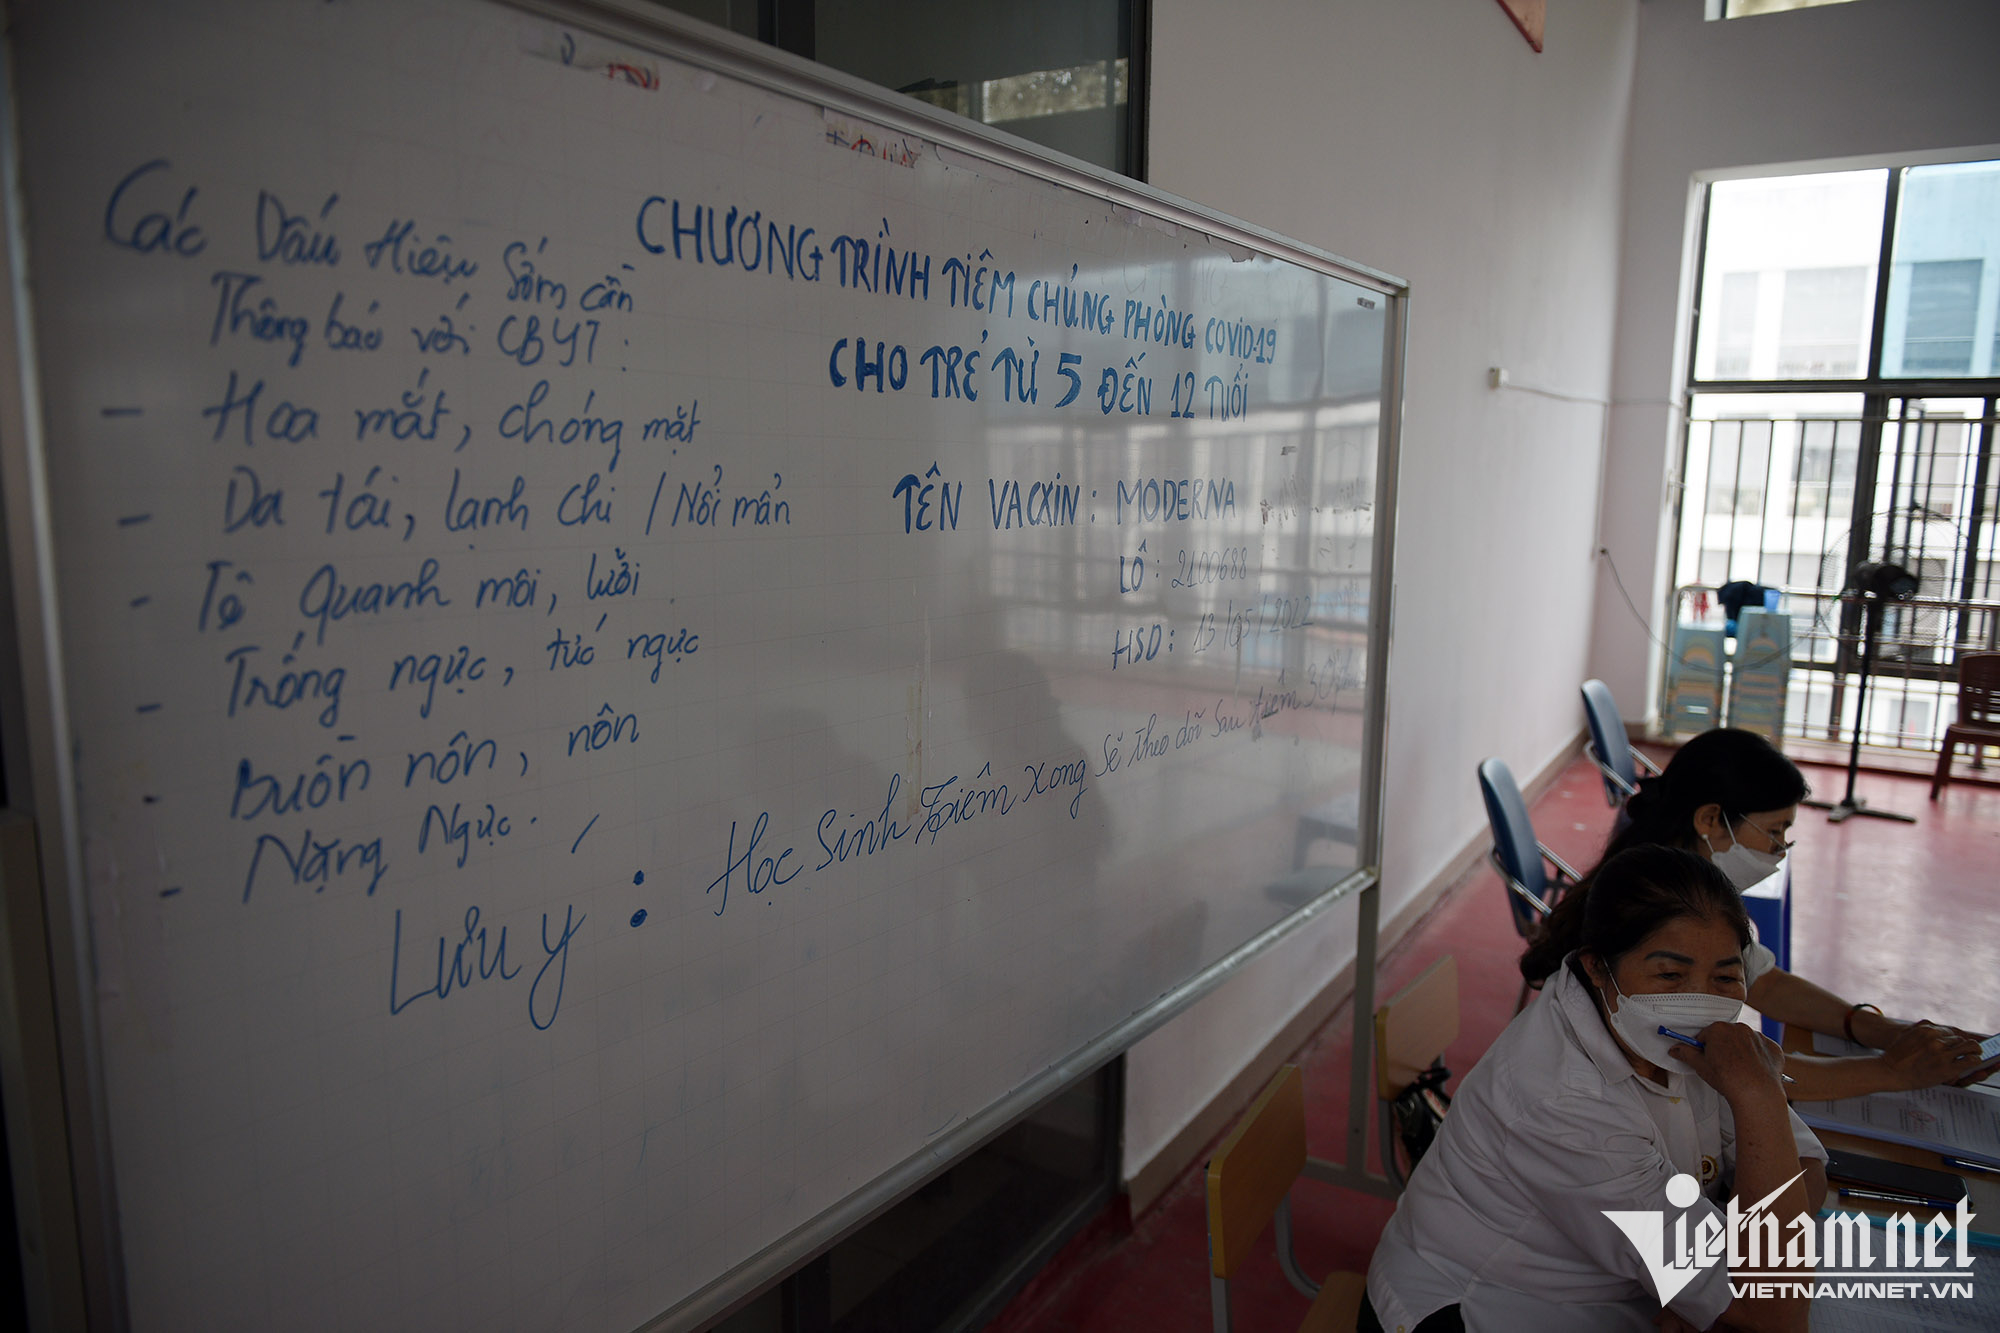 Các Dấu Hiệu Sớm cần
Thông báo với CBYT:
- Hoa mắt, chóng mặt
- Da tái, lạnh chi / Nổi mẩn
- Tê Quanh môi, lưỡi.
- Trống ngực, tức ngực
- Buồn nôn, nôn
- Nặng Ngực.
CHƯƠNG TRÌNH TIÊM CHỦNG PHÒNG COVID-19
CHO TRẺ TỪ 5 ĐẾN 12 TUỔI
TÊN VACXIN: MODERNA
LÔ: 2100688
HSD: 13/05/2022
Lưu ý: Học Sinh Tiêm xong Sẽ theo dõi Sau tiêm 30 phút
Vietnamnet
VIETNAMNET.VN